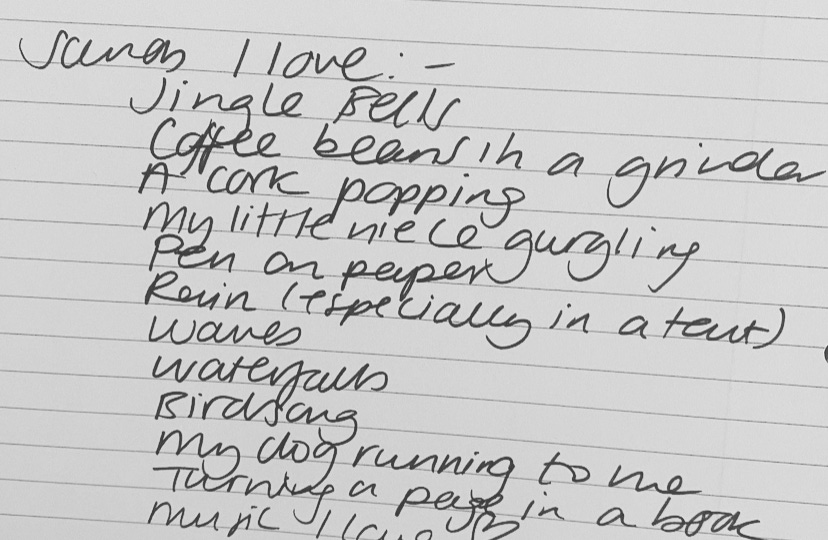 Sounds I love:-
Jingle Bells
Coffee beans in a grinder
A cork popping
My little niece gurgling
Pen on paper
Rain (especially in a tent)
Waves
Waterfalls
Birdsong
My dog running to me
Turning a page in a book
Music I